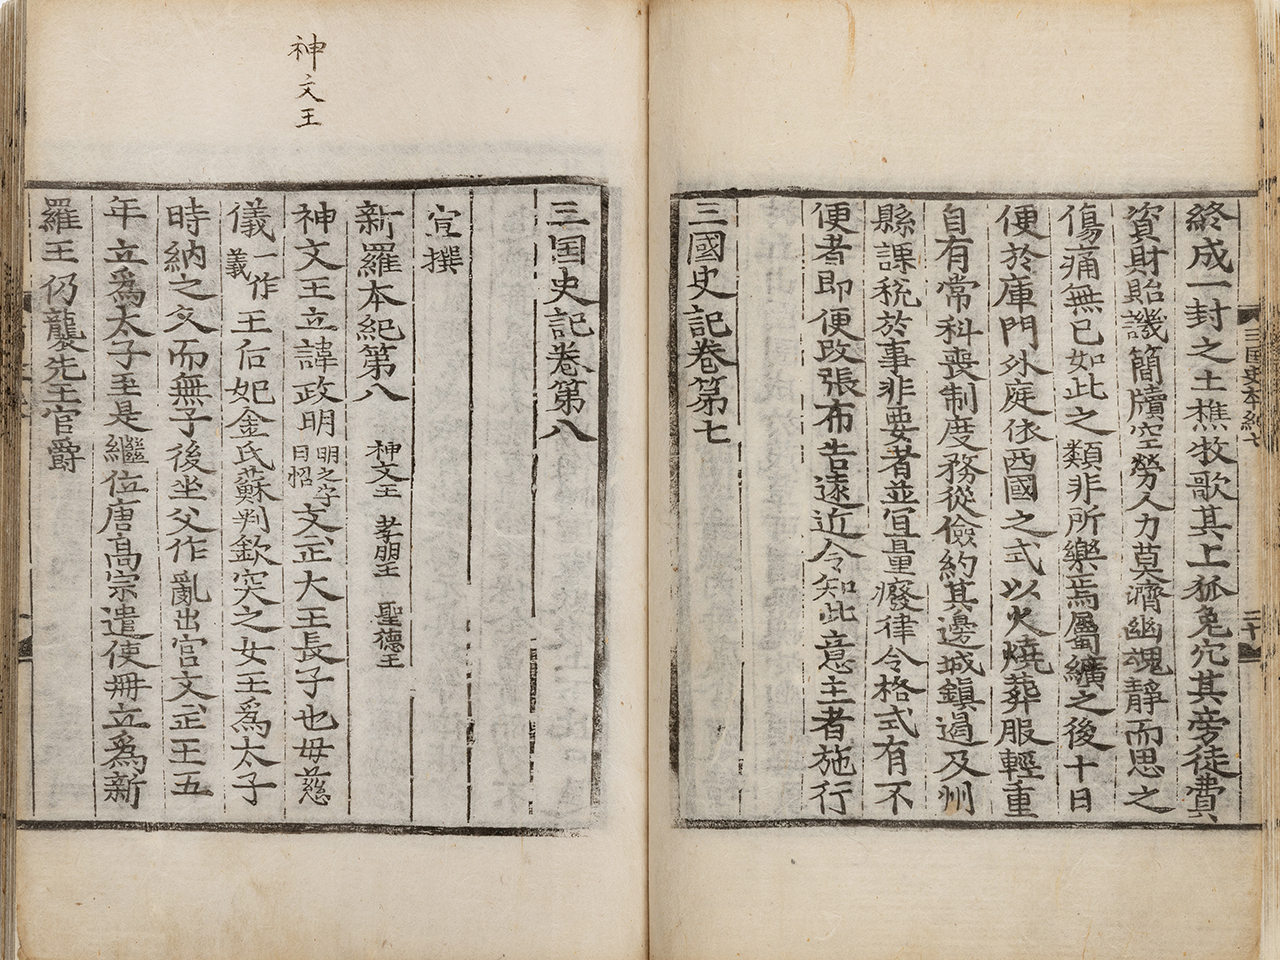 終成一封之土樵牧歌其上狐兔穴其旁徒費
資財貽譏簡牘空勞人力莫濟幽魂靜而思之
傷痛無已如此之類非所樂焉屬纊之後十日
便於庫門外庭依西國之式以火燒葬服輕重
自有常科喪制度務從儉約其邊城鎭遏及州
縣課稅於事非要者並宜量廢律令格式有不
便者即便改張布告遠近令知此意主者施行
三國史記卷第七
三国史記卷第八
宣撰
新羅本紀第八 神文王 孝明王 聖德王
神文王
神文王立諱政明明之字日怊文正大王長子也母慈
儀一作義王后妃金氏蘇判欽突之女王爲太子
時納之久而無子後坐父作亂出宮文正王五
年立爲太子至是繼位唐高宗遣使冊立爲新
羅王仍襲先王官爵